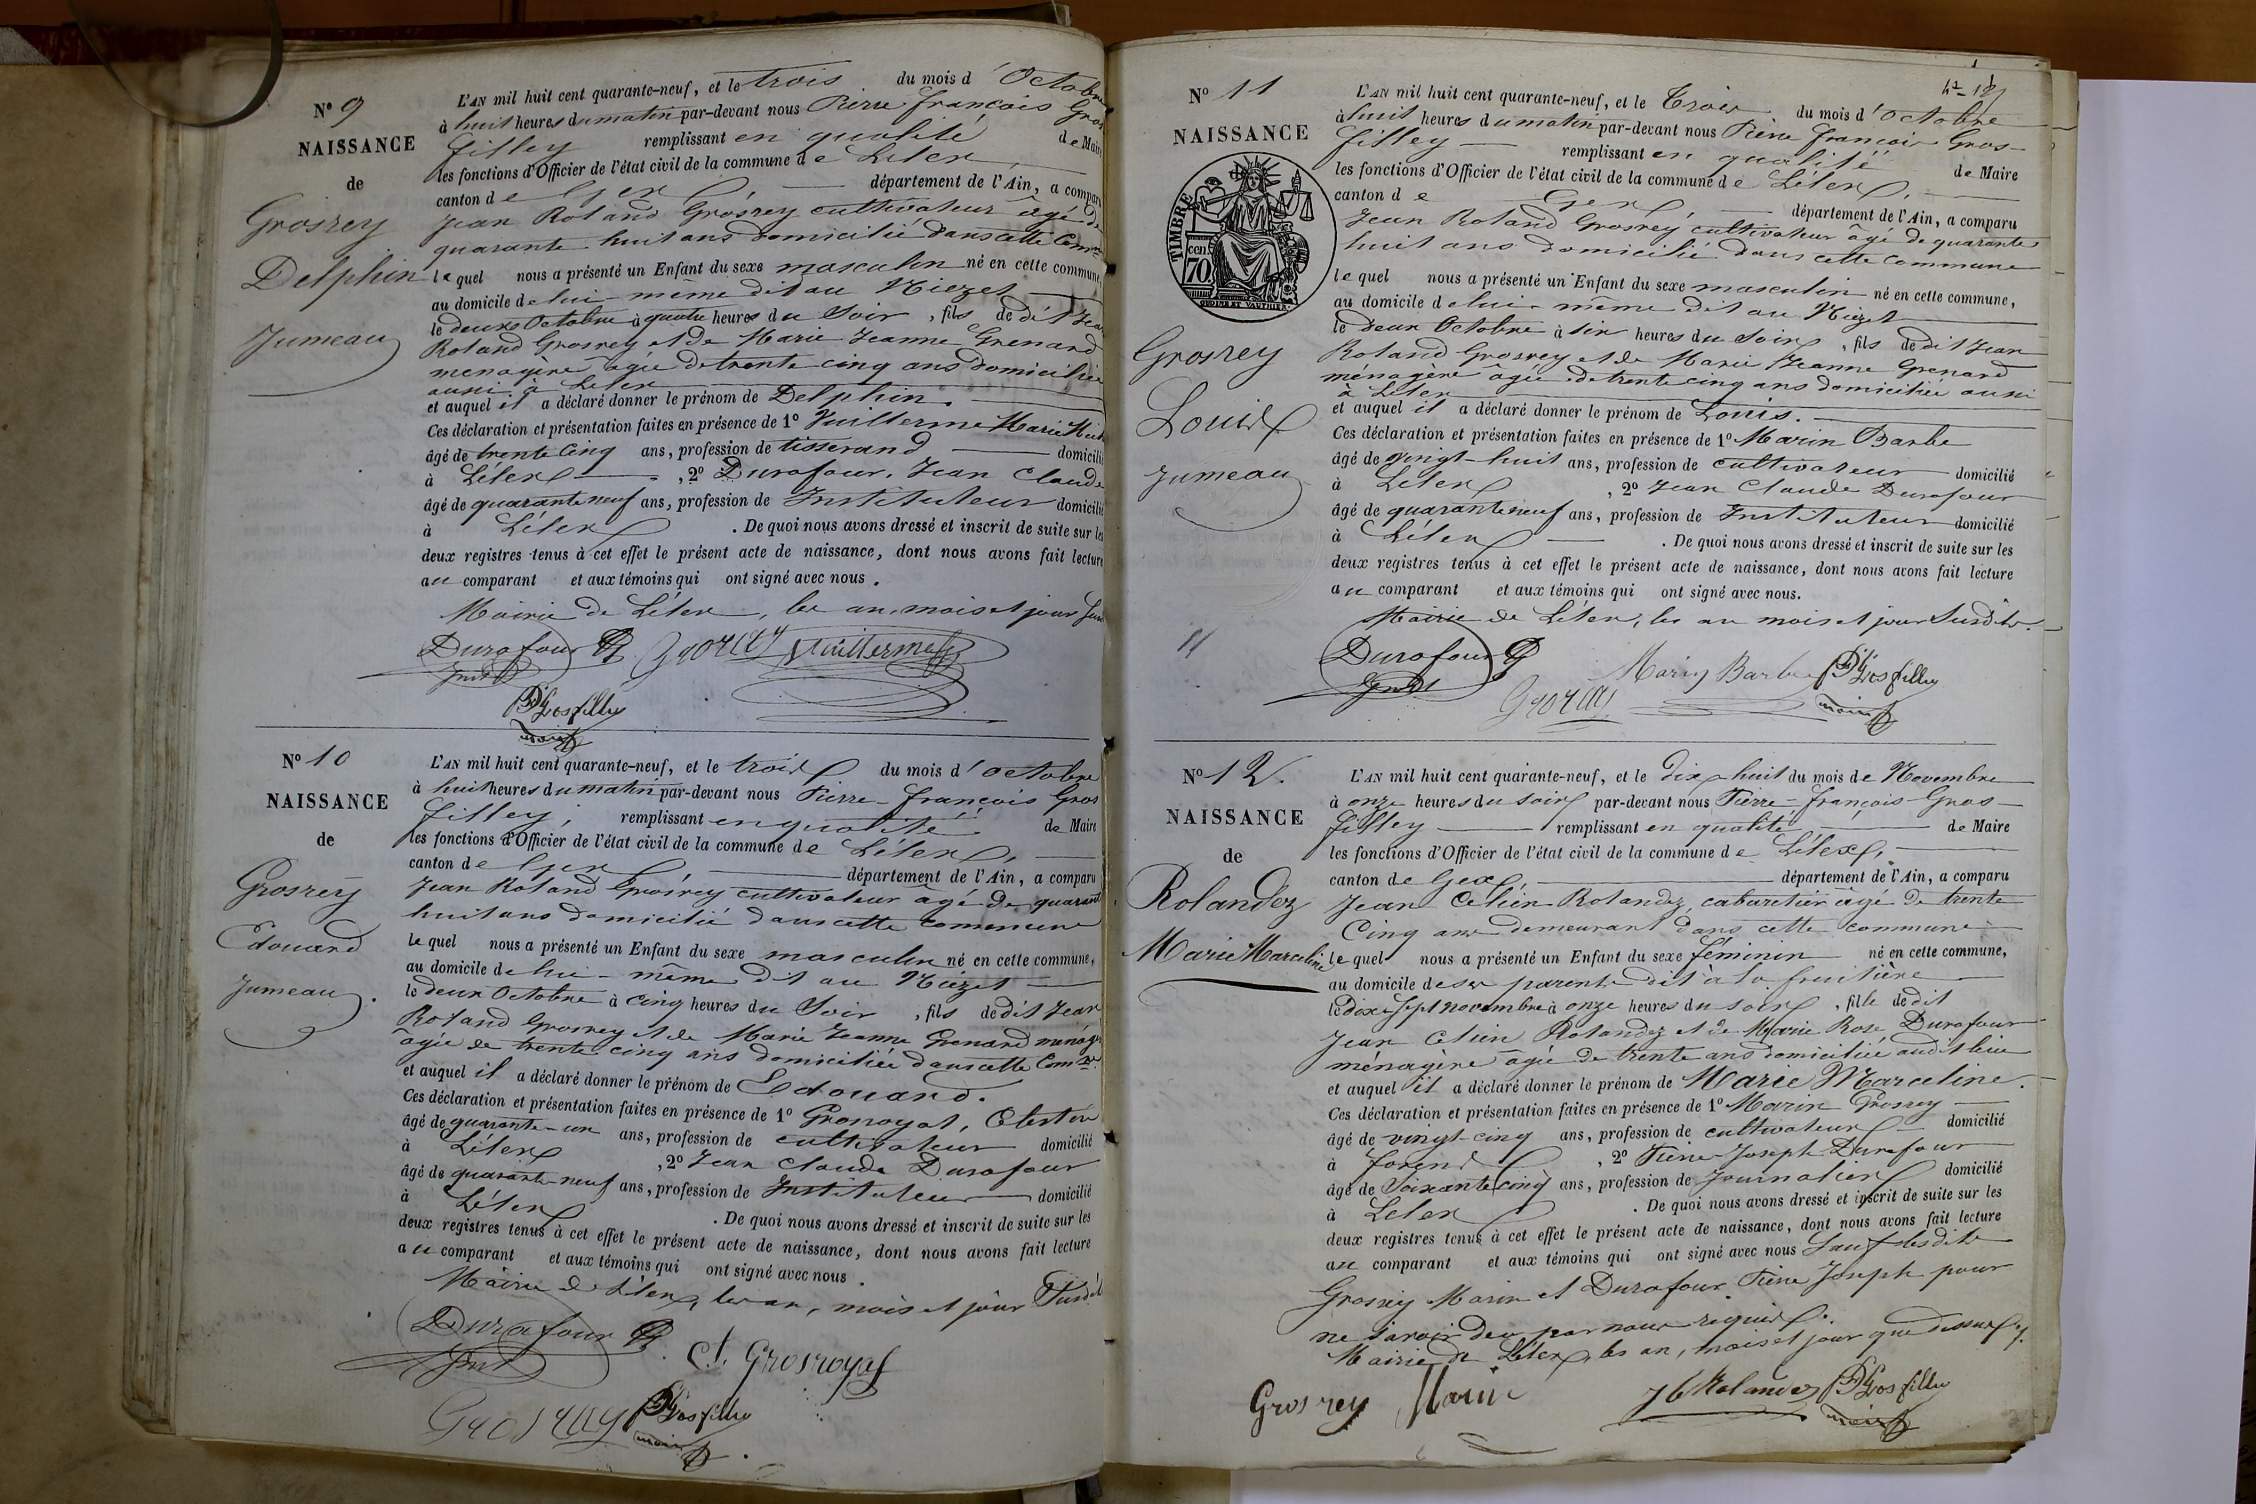 N° 9
NAISSANCE
de
Grosrey
Delphin
Jumeau
L'AN mil huit cent quarante-neuf, et le trois du mois d'Octobre
à huit heures du matin par-devant nous Pierre françois Gros
filley remplissant en qualité de Maire
les fonctions d'Officier de l'état civil de la commune de Lélex
canton de Gex département de l'Ain, a comparu
Jean Roland Grosrey cultivateur âgé de
quarante huit ans domicilié dans cette Comne
lequel nous a présenté un Enfant du sexe masculin né en cette commune,
au domicile de lui-même dit au Niezet
le deux Octobre à quatre heures du Soir, fils de dit Jean
Roland Grosrey et de Marie Jeanne Grenard
ménagère âgée de trente cinq ans domiciliée
aussi à Lélex
et auquel il a déclaré donner le prénom de Delphin.
Ces déclaration et présentation faites en présence de 1° Vuillerme Marie
âgé de trente Cinq ans, profession de tisserand domicilié
à Lélex, 2° Durafour, Jean Claude
âgé de quarante neuf ans, profession de Instituteur domicilié
à Lélex. De quoi nous avons dressé et inscrit de suite sur les
deux registres tenus à cet effet le présent acte de naissance, dont nous avons fait lecture
au comparant et aux témoins qui ont signé avec nous.
Mairie de Lélex, les an, mois et jour
Durafour Grorey Vuillerme
Inst
Grosfilley
maire
N° 10
NAISSANCE
de
Grosrey
Edouard
Jumeau.
L'AN mil huit cent quarante-neuf, et le trois du mois d'octobre
à huit heures du matin par-devant nous Pierre-françois Gros
filley, remplissant en qualité de Maire
les fonctions d'Officier de l'état civil de la commune de Lélex,
canton de Gex département de l'Ain, a comparu
Jean Roland Grosrey cultivateur âgé de quarante
huit ans domicilié dans cette commune
lequel nous a présenté un Enfant du sexe masculin né en cette commune,
au domicile de lui-même dit au Niezet
le deux Octobre à cinq heures du Soir, fils de dit Jean
Roland Grosrey et de Marie Jeanne Grenard ménagère
âgée de trente cinq ans domiciliée dans cette Comne
et auquel il a déclaré donner le prénom de Edouard.
Ces déclaration et présentation faites en présence de 1° Grosroyat, Célestin
âgé de quarante-un ans, profession de cultivateur domicilié
à Lélex, 2° Jean Claude Durafour
âgé de quarante-neuf ans, profession de Instituteur domicilié
à Lélex. De quoi nous avons dressé et inscrit de suite sur les
deux registres tenus à cet effet le présent acte de naissance, dont nous avons fait lecture
au comparant et aux témoins qui ont signé avec nous.
Mairie de Lélex, les an, mois et jour Susdits
Durafour
Inst
Ct. Grosroyat
Grosrey Grosfilley
maire
N° 11
NAISSANCE
TIMBRE
cen
70
OUDINÉ ET VAUTHIER.
Grosrey
Louis
Jumeau
L'AN mil huit cent quarante-neuf, et le trois du mois d'octobre
à huit heures du matin par-devant nous Pierre françois Gros-
filley remplissant en qualité de Maire
les fonctions d'Officier de l'état civil de la commune de Lélex,
canton de Gex, département de l'Ain, a comparu
Jean Roland Grosrey cultivateur âgé de quarante
huit ans domicilié dans cette commune
lequel nous a présenté un Enfant du sexe masculin né en cette commune,
au domicile de lui-même dit au Niezet
le deux Octobre à six heures du Soir, fils de dit Jean
Roland Grosrey et de Marie Jeanne Grenard
ménagère âgée de trente cinq ans domiciliée aussi
à Lélex
et auquel il a déclaré donner le prénom de Louis.
Ces déclaration et présentation faites en présence de 1° Marin Barbe
âgé de vingt-huit ans, profession de cultivateur domicilié
à Lélex, 2° Jean Claude Durafour
âgé de quarante neuf ans, profession de Instituteur domicilié
à Lélex. De quoi nous avons dressé et inscrit de suite sur les
deux registres tenus à cet effet le présent acte de naissance, dont nous avons fait lecture
au comparant et aux témoins qui ont signé avec nous.
Mairie de Lélex, les an mois et jour Susdits.
11
Durafour Marin Barbe Grosfilley
Inst Grorey maire
N° 12.
NAISSANCE
de
Rolandez
Marie Marceline
L'AN mil huit cent quarante-neuf, et le dix huit du mois de Novembre
à onze heures du soir par-devant nous Pierre-françois-Gros-
filley remplissant en qualité de Maire
les fonctions d'Officier de l'état civil de la commune de Lélex,
canton de Gex, département de l'Ain, a comparu
Jean Célien Rolandez, cabaretier âgé de trente
Cinq ans demeurant dans cette commune
lequel nous a présenté un Enfant du sexe féminin né en cette commune,
au domicile de ses parents dit à la fruitière
le dix-sept novembre à onze heures du soir, fille de dit
Jean Celien Rolandez et de Marie Rose Durafour
ménagère âgée de trente ans domiciliée audit lieu
et auquel il a déclaré donner le prénom de Marie Marceline.
Ces déclaration et présentation faites en présence de 1° Marin Grosrey
âgé de vingt-cinq ans, profession de cultivateur domicilié
à forens, 2° Pierre-Joseph Durafour
âgé de Soixante cinq ans, profession de Journalier domicilié
à Lelex. De quoi nous avons dressé et inscrit de suite sur les
deux registres tenus à cet effet le présent acte de naissance, dont nous avons fait lecture
au comparant et aux témoins qui ont signé avec nous Sauf lesdits
Grosrey Marin et Durafour Pierre Joseph pour
ne savoir de par nous requis.
Mairie de Lélex, les an, mois et jour que dessus
Grosrey Marin Rolandez Grosfilley
maire